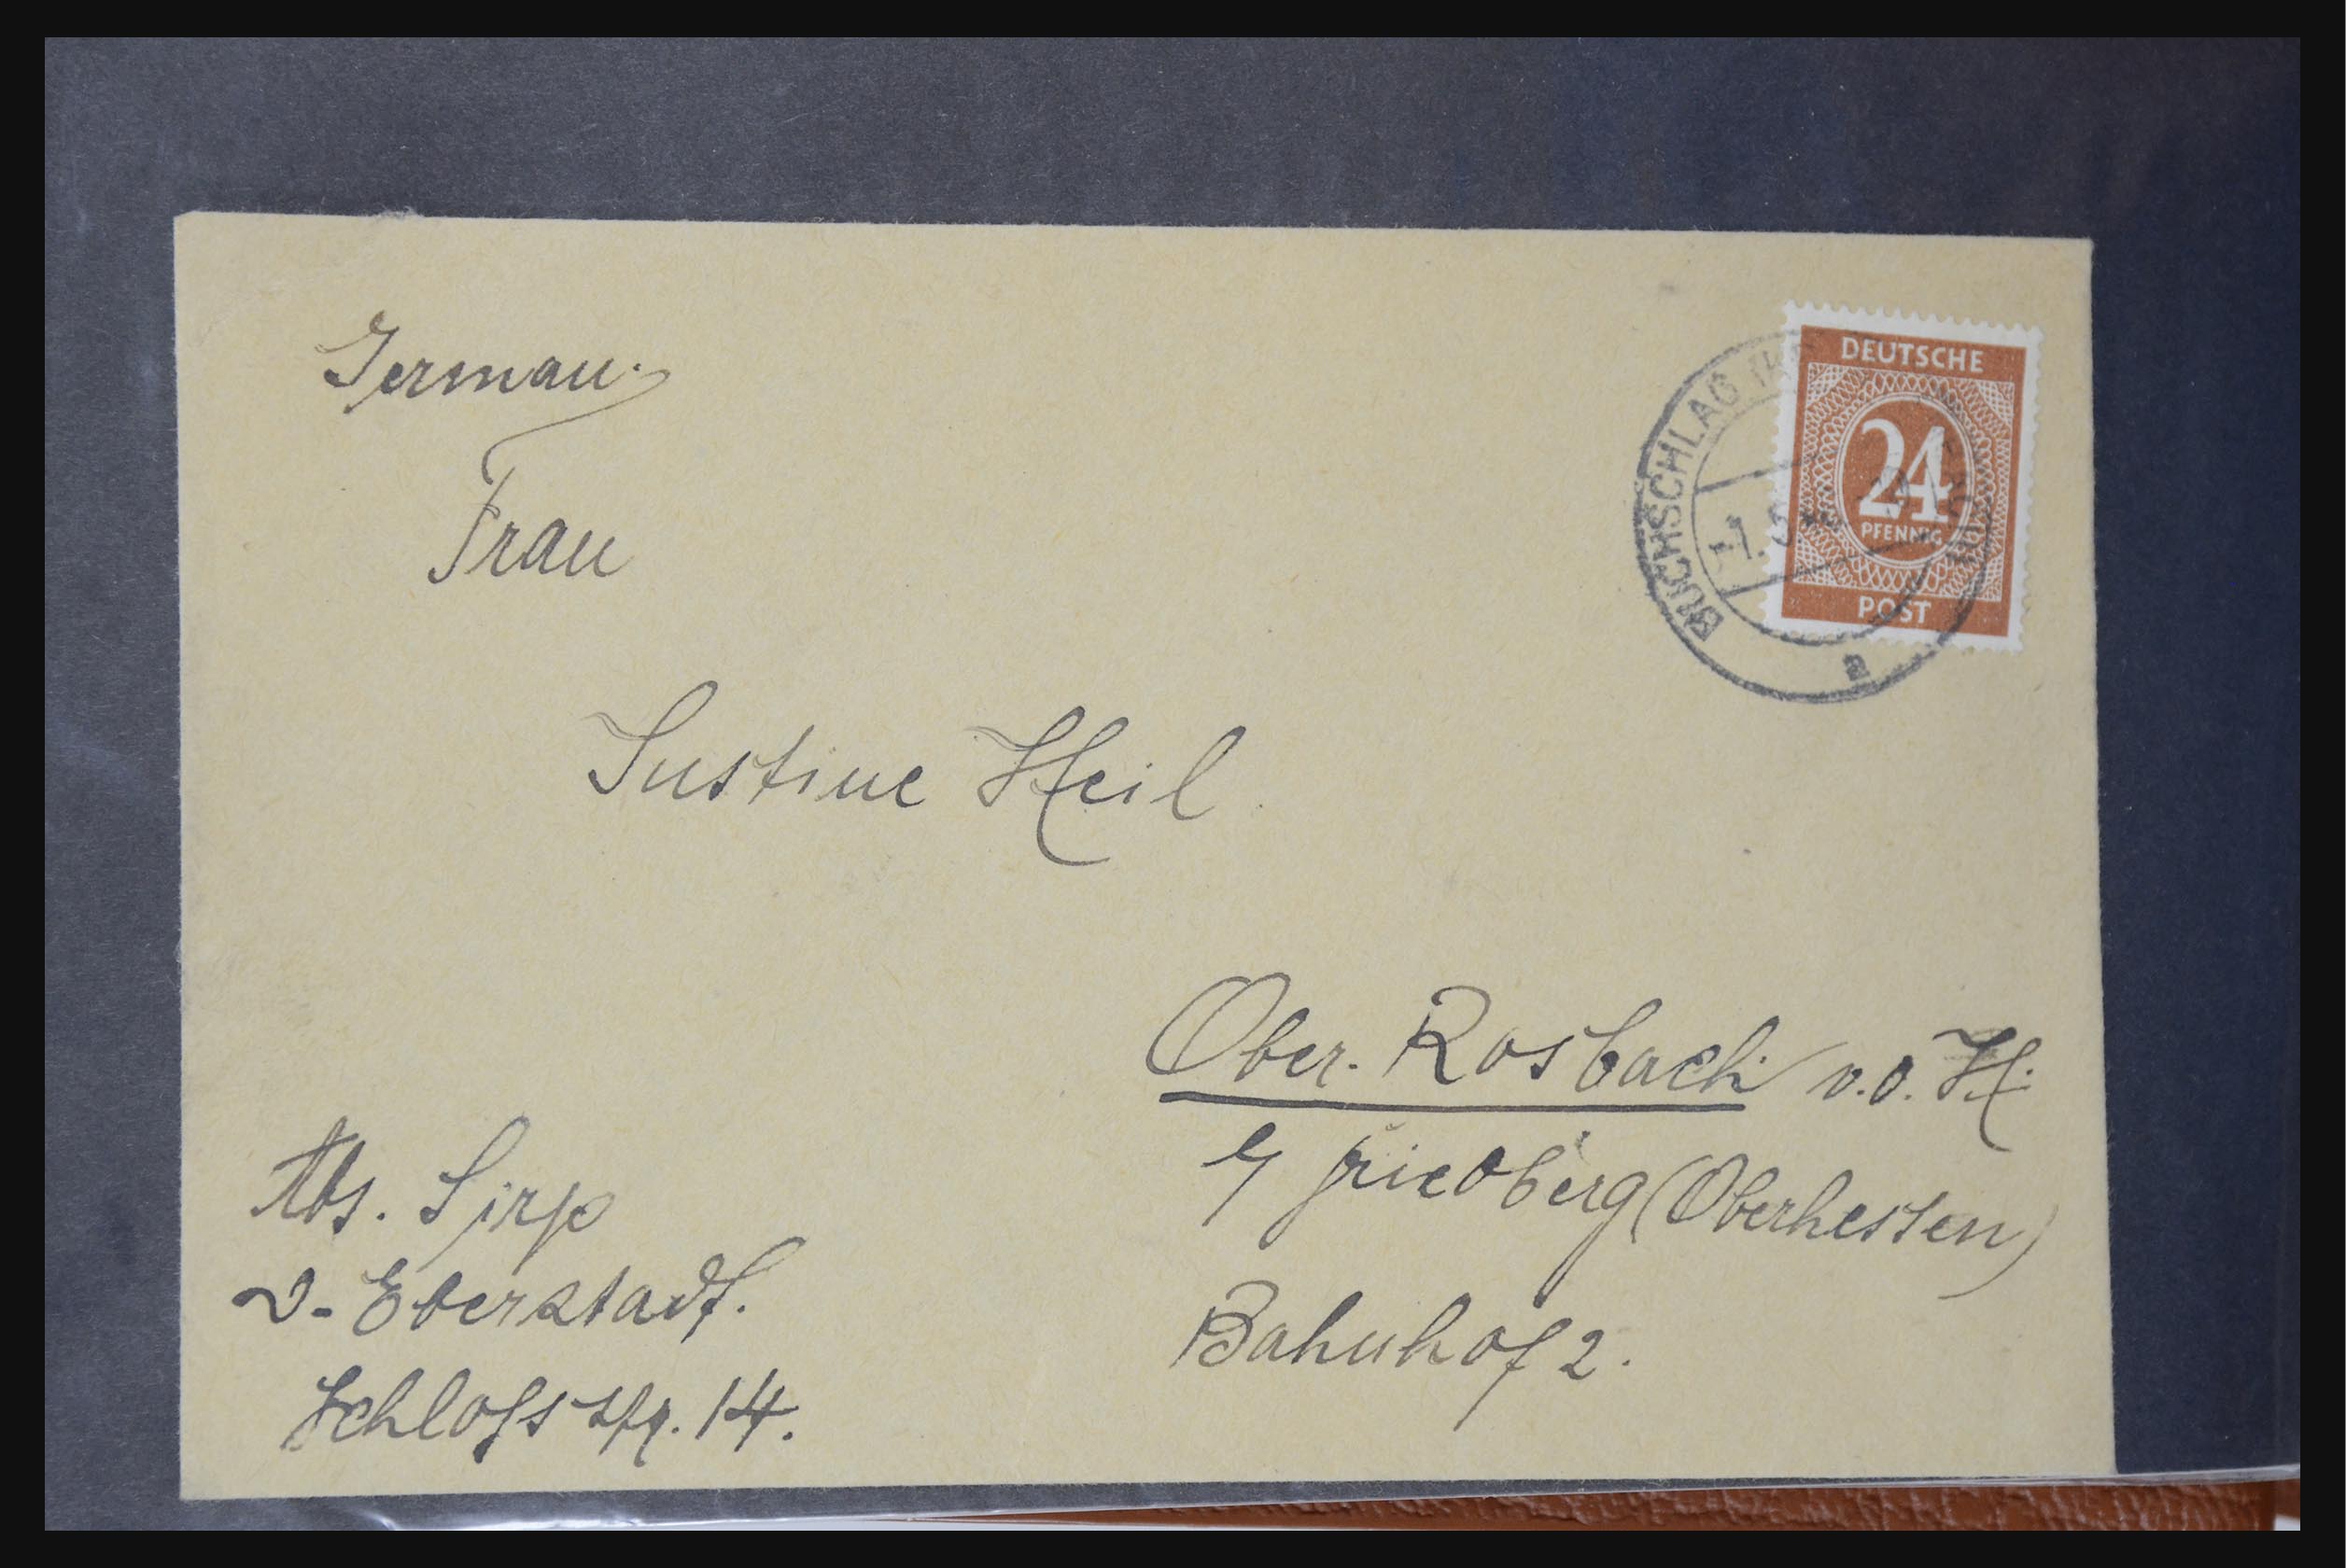 German.
Frau
Justine Heil
Ober-Rosbach v.d.H.
b/ Friedberg (Oberhessen)
Bahnhof 2.
Abs. Sirp
D-Eberstadt.
Schlossstr. 14.
DEUTSCHE
24
PFENNIG
POST
BUCHSCHLAG
a